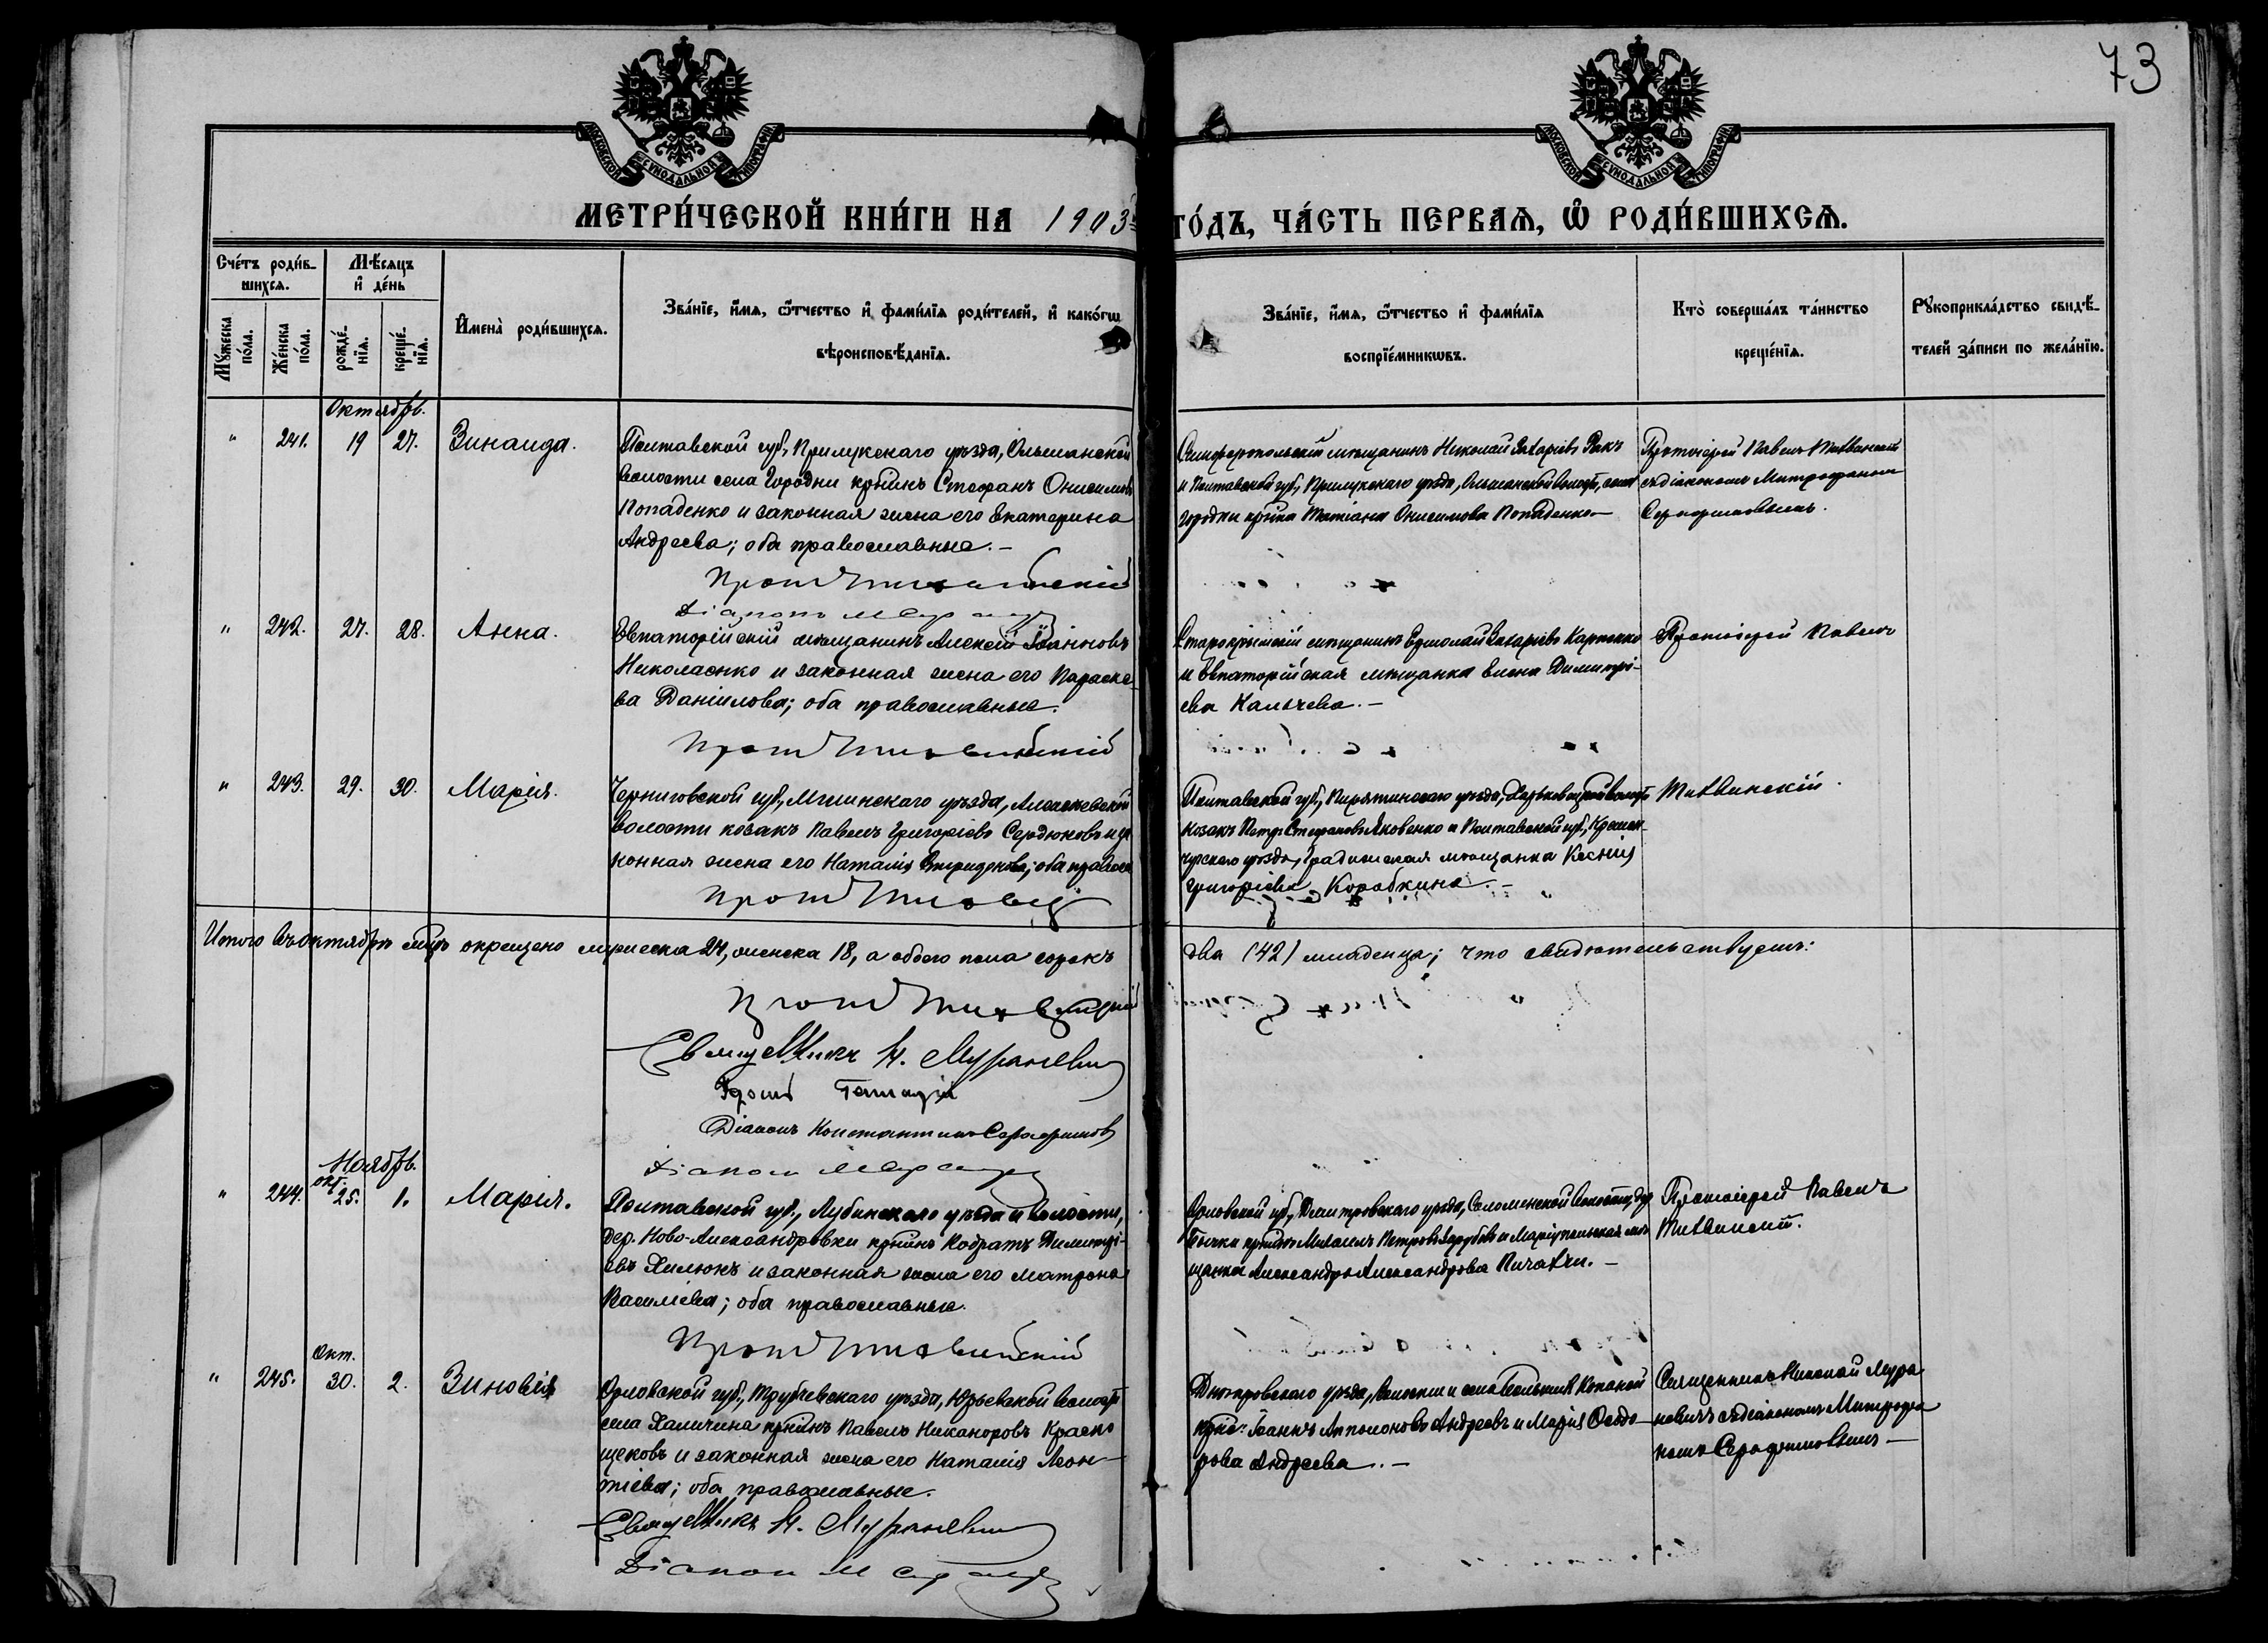 73
МОСКОВСКОЙ СУНОДАЛЬНОЙ ТИПОГРАФІИ
МОСКОВСКОЙ СУНОДАЛЬНОЙ ТИПОГРАФІИ
МЕТРИ́ЧЕСКОЙ КНИ́ГИ НА 1903 ГО́ДЪ, ЧА́СТЬ ПЕРВАѦ, Ѿ РОДИ́ВШИХСѦ.
Сче́тъ роди́в-
шихсѧ.
Мѣ́сѧцъ
и҆ де́нь
Мꙋ́жеска
по́ла.
Же́нска
по́ла.
рожде́-
нїѧ.
креще́-
нїѧ.
И҆мена̀ роди́вшихсѧ.
Зва́нїе, и҆́мѧ, ѻ҆́тчество и҆ фами́лїѧ роди́телей, и҆ како́гѡ
вѣроисповѣ́данїѧ.
Зва́нїе, и҆́мѧ, ѻ҆́тчество и҆ фами́лїѧ
воспрїе́мникѡвъ.
Кто̀ соверша́лъ та́инство
креще́нїѧ.
Рꙋкоприкла́дство свидѣ́-
телей за́писи по жела́нїю.
Октябрь.
" 241. 19 27. Зинаида.
Полтавской губ., Прилукскаго уѣзда, Ольшанской
волости села Городни кр-нинъ Стефанъ Онисимовъ
Попаденко и законная жена его Екатерина
Андреева; оба православные.-
Симферопольскій мѣщанинъ Николай Захаріевъ Рокъ
и Полтавской губ., Прилукскаго уѣзда, Ольшанской волости, села
Городни кр-нка Татіана Онисимова Попаденко-
Протоіерей Павелъ Тихвинскій
съ діакономъ Митрофаномъ
Серафимовымъ.
Прот Тихвинскій
Діаконъ М Сер
" 242. 27. 28. Анна.
Евпаторійскій мѣщанинъ Алексѣй Іоанновъ
Николаенко и законная жена его Параске-
ва Даніилова; оба православные.
Старокрымскій мѣщанинъ Ермолай Захаріевъ Карпенко
и Евпаторійская мѣщанка Елена Димитрі-
ева Калычева.-
Протоіерей Павелъ
Прот Тихвинскій
" 243. 29. 30. Марія.
Черниговской губ., Мглинскаго уѣзда, Алексѣевской
волости козакъ Павелъ Григоріевъ Сердюковъ и за-
конная жена его Наталія Спиридонова; оба правосл
Полтавской губ., Пирятинскаго уѣзда, Харьковецкой волости
козакъ Петръ Стефановъ Яковенко и Полтавской губ., Кремен-
чугскаго уѣзда, Градижская мѣщанка Ксенія
Григоріева Коробкина.-
Тихвинскій.
Прот Тихвин
Итого въ октябрѣ м-цѣ окрещено мужеска 24, женска 18, а обоего пола сорокъ
два (42) младенца; что свидѣтельствуемъ:
Прот Тихвинскій
Священникъ Н. Мураневич
Діаконъ Константинъ Серафимов
Діакон М Сер
Ноябрь.
" 244. окт. 25. 1. Марія.
Полтавской губ., Лубинскаго уѣзда и волости,
дер. Ново-Александровки кр-нинъ Кодратъ Димитрі-
евъ Хилюкъ и законная жена его Матрона
Василіева; оба православные.
Орловской губ., Дмитровскаго уѣзда, Соломенской волости, дер
Бычки кр-нинъ Михаилъ Петровъ Зарубовъ и Маріупольская мѣ-
щанка Александра Александрова Пичахчи.-
Протоіерей Павелъ
Тихвинскій.
Прот Тихвинскій
" 245. окт. 30. 2. Зиновія
Орловской губ., Трубчевскаго уѣзда, Юрьевской волости
села Халичина кр-нинъ Павелъ Никаноровъ Красно
щековъ и законная жена его Наталія Леон-
тіева; оба православные.
Днѣпровскаго уѣзда, волости и села Большой Копаней
кр-не: Іоаннъ Апполоновъ Андреевъ и Марія Ѳеодо-
рова Андреева.-
Священникъ Николай Мура
невичъ съ діакономъ Митрофа
номъ Серафимовымъ-
Священникъ Н. Мураневич
Діакон М Сер